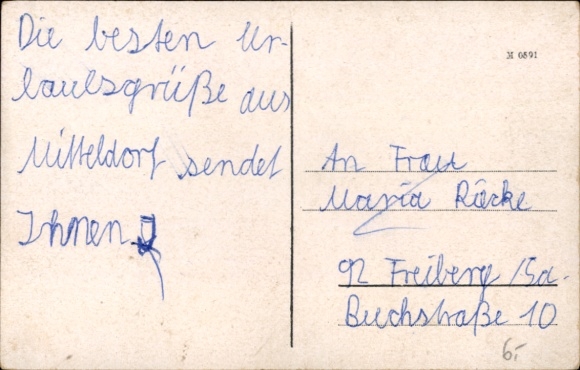 Die besten Ur-
laubsgrüße aus
Mitteldorf sendet
Ihnen
M 0591
An Frau
Maria Räcke
92 Freiberg /Sa.
Buchstraße 10
6,-